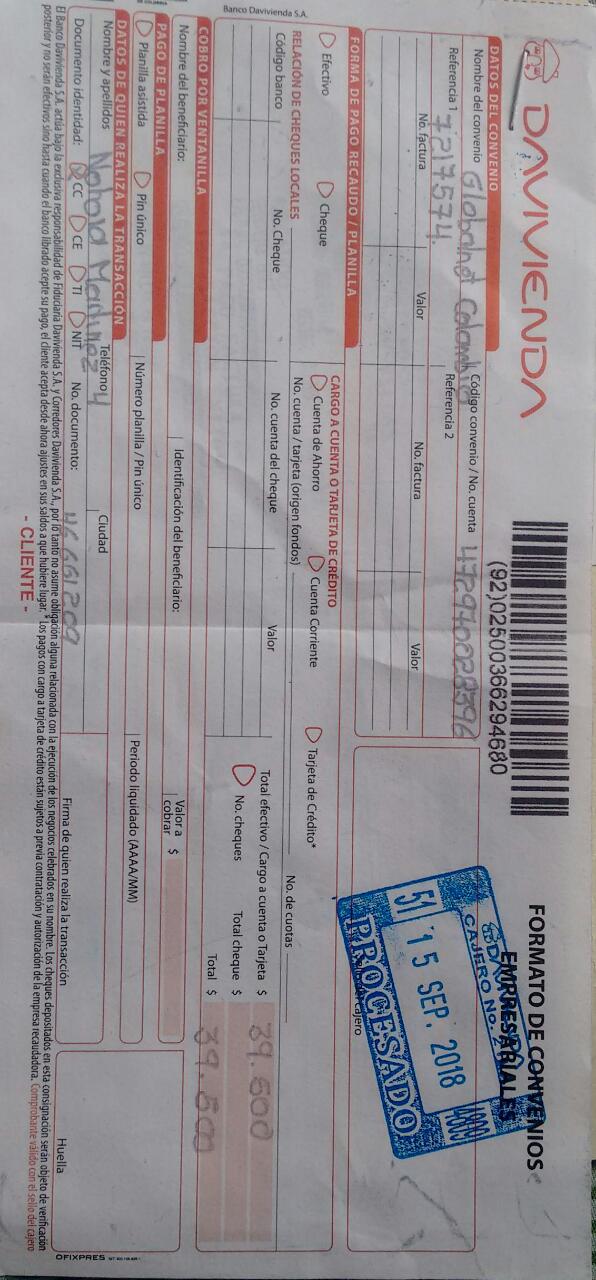 DAVIVIENDA
(92)02500366294680
FORMATO DE CONVENIOS
EMPRESARIALES
DATOS DEL CONVENIO
Nombre del convenio Globalnet Colombia Código convenio / No. cuenta
Referencia 1 7217574. Referencia 2
No. factura Valor No. factura Valor
DAVIVIENDA
CAJERO No.
51 15 SEP. 2018 4869
PROCESADO
FORMA DE PAGO RECAUDO / PLANILLA
Efectivo Cheque
CARGO A CUENTA O TARJETA DE CRÉDITO
Cuenta de Ahorro Cuenta Corriente Tarjeta de Crédito*
No. cuenta / tarjeta (origen fondos) No. de cuotas
RELACIÓN DE CHEQUES LOCALES
Código banco No. Cheque No. cuenta del cheque Valor
Total efectivo / Cargo a cuenta o Tarjeta $ 39.500
No. cheques Total cheque $
Total $ 39.500
COBRO POR VENTANILLA
Nombre del beneficiario: Identificación del beneficiario: Valor a cobrar $
PAGO DE PLANILLA
Planilla asistida Pin único Número planilla / Pin único Periodo liquidado (AAAA/MM)
DATOS DE QUIEN REALIZA LA TRANSACCIÓN
Nombre y apellidos Teléfono Ciudad
Documento identidad: CC CE TI NIT No. documento: 46661209
Firma de quien realiza la transacción
Huella
El Banco Davivienda S.A. actúa bajo la exclusiva responsabilidad de Fiduciaria Davivienda S.A. y Corredores Davivienda S.A., por lo tanto no asume obligación alguna relacionada con la ejecución de los negocios celebrados en su nombre. Los cheques depositados en esta consignación serán objeto de verificación
posterior y no serán efectivos sino hasta cuando el banco librado acepte su pago, el cliente acepta desde ahora ajustes en sus saldos a que hubiere lugar. *Los pagos con cargo a tarjeta de crédito están sujetos a previa contratación y autorización de la empresa recaudadora. Comprobante válido con el sello del cajero
- CLIENTE -
Banco Davivienda S.A.
OFIXPRES